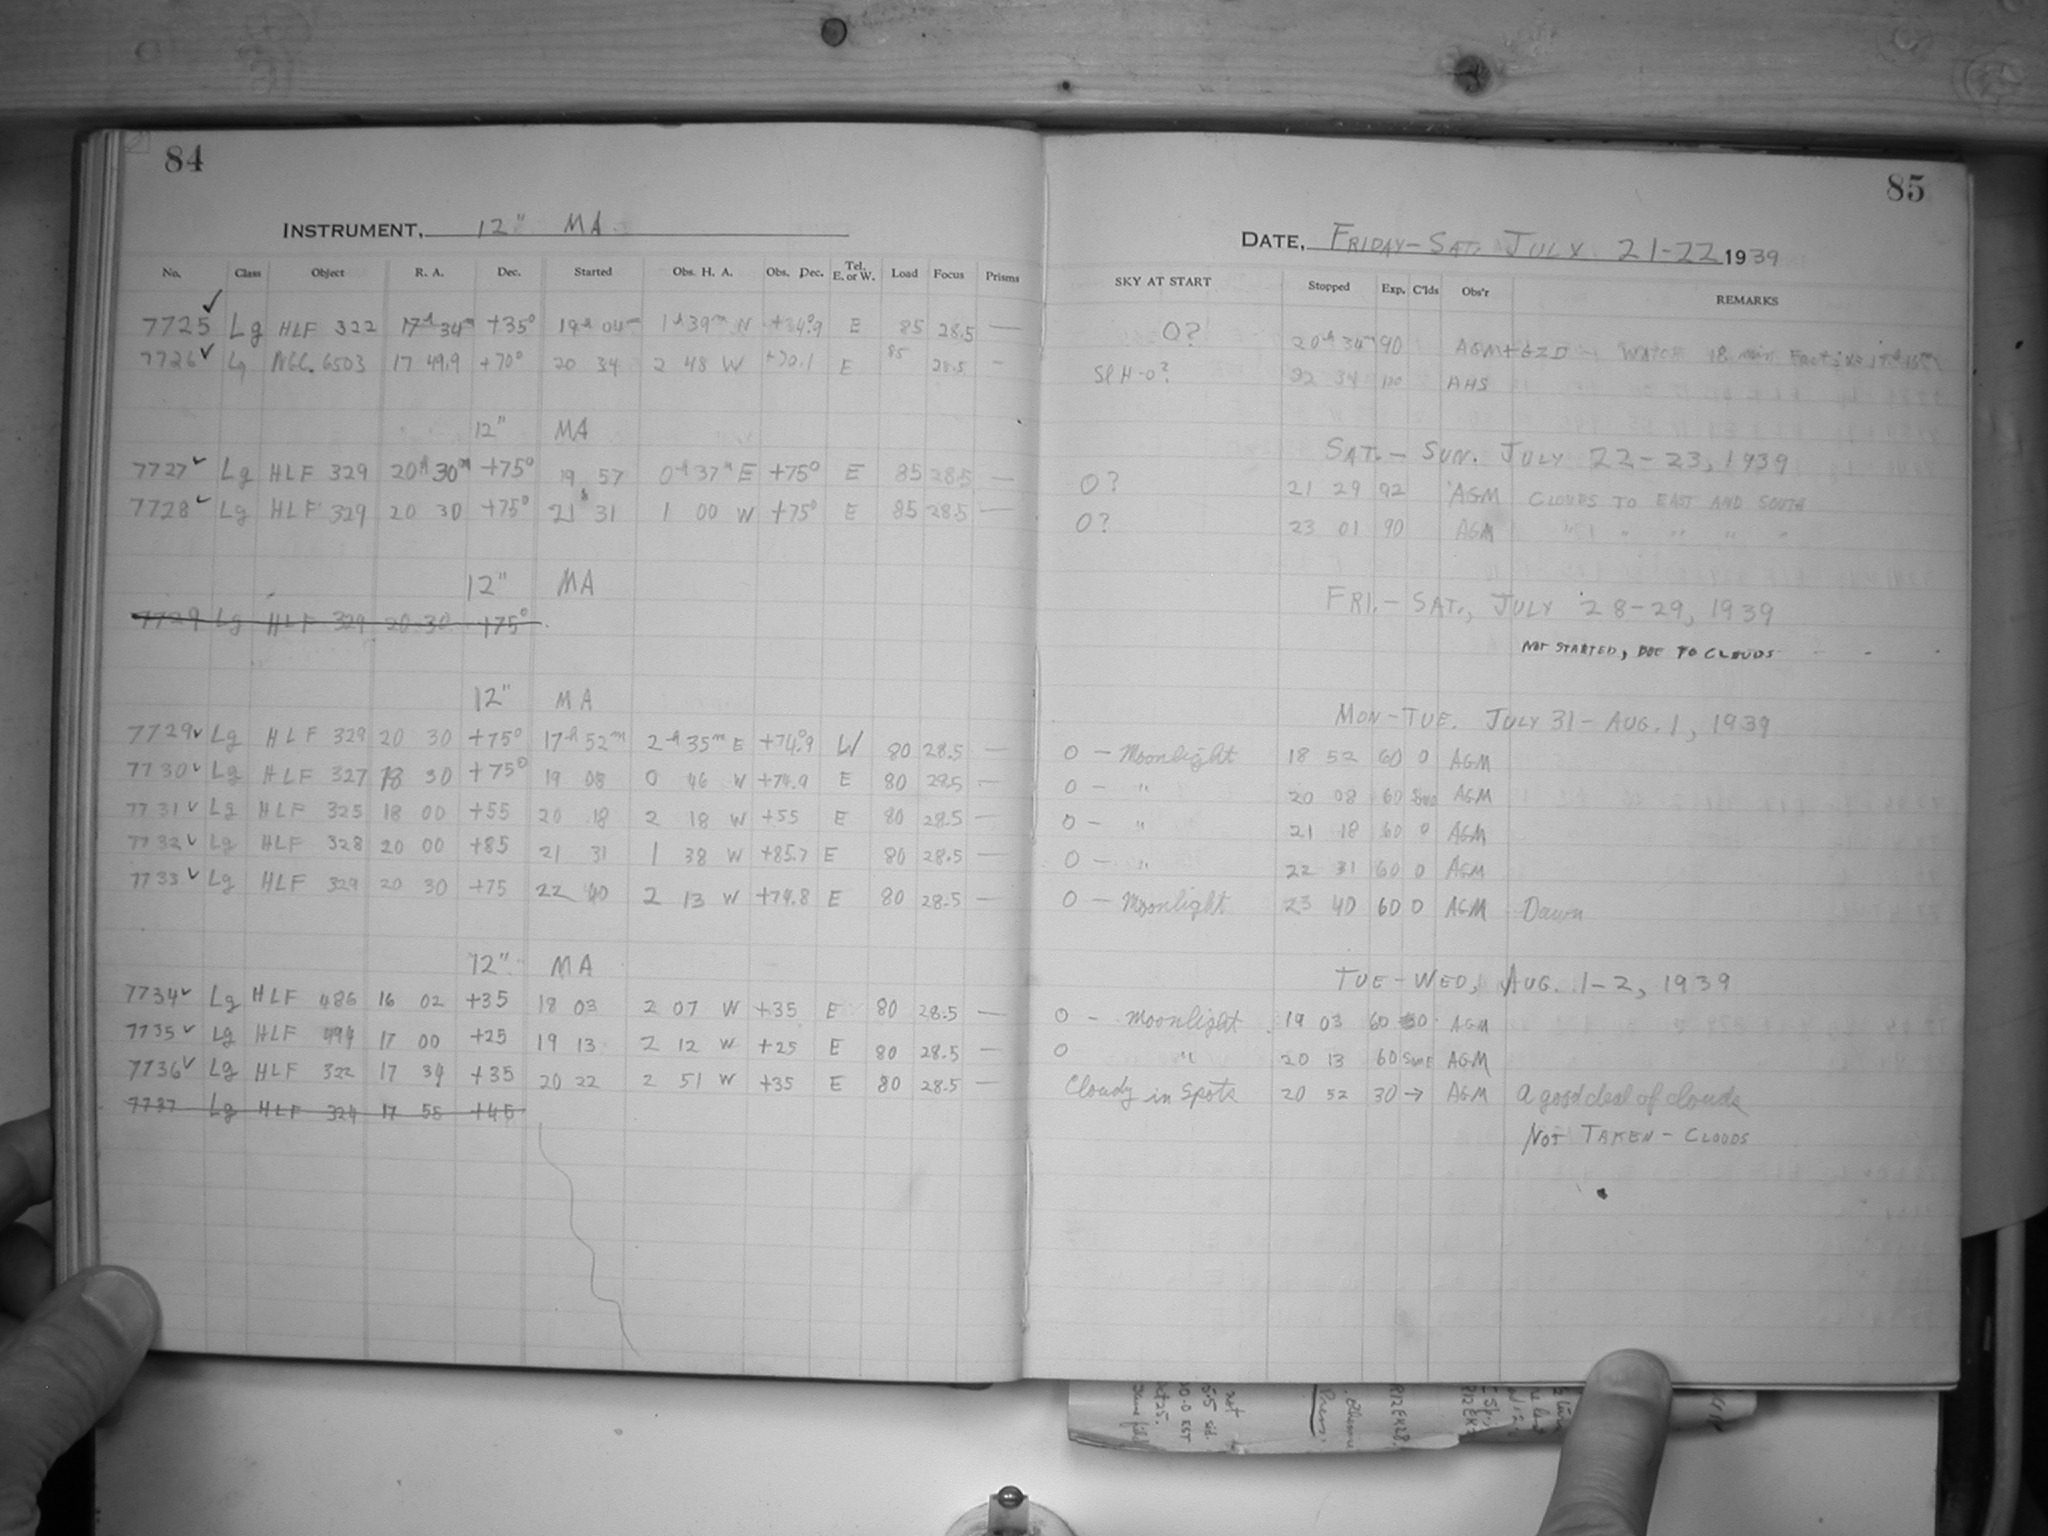 84
INSTRUMENT, 12" MA
No. Class Object R. A. Dec. Started Obs. H. A. Obs. Dec. Tel. E. or W. Load Focus Prisms
7725 ✓ Lg HLF 322 17h 34m +35° 19h 04m 1h 39m W +34.9 E 85 28.5 —
7726 ✓ Lg NGC. 6503 17 49.9 +70° 20 34 2 48 W +70.1 E 85 28.5 —
12" MA
7727 ✓ Lg HLF 329 20h 30m +75° 19 57 0h 37m E +75° E 85 28.5 —
7728 ✓ Lg HLF 329 20 30 +75° 21 31 1 00 W +75° E 85 28.5 —
12" MA
7729 Lg HLF 329 20 30 +75°
12" MA
7729 ✓ Lg HLF 329 20 30 +75° 17h 52m 2h 35m E +74.9 W 80 28.5 —
7730 ✓ Lg HLF 327 18 30 +75° 19 08 0 46 W +74.9 E 80 28.5 —
7731 ✓ Lg HLF 325 18 00 +55 20 18 2 18 W +55 E 80 28.5 —
7732 ✓ Lg HLF 328 20 00 +85 21 31 1 38 W +85.7 E 80 28.5 —
7733 ✓ Lg HLF 329 20 30 +75 22 40 2 13 W +74.8 E 80 28.5 —
12" MA
7734 ✓ Lg HLF 486 16 02 +35 18 03 2 07 W +35 E 80 28.5 —
7735 ✓ Lg HLF 494 17 00 +25 19 13 2 12 W +25 E 80 28.5 —
7736 ✓ Lg HLF 322 17 34 +35 20 22 2 51 W +35 E 80 28.5 —
7737 Lg HLF 324 17 55 +45
85
DATE, FRIDAY-SAT. JULY 21-22 1939
SKY AT START Stopped Exp. C'lds Obs'r REMARKS
0? 20h 34m 90 AGM+GZD WATCH 18 min. Fast
Sl H-0? 22 34 120 AHS
SAT. - SUN. JULY 22-23, 1939
0? 21 29 92 AGM CLOUDS TO EAST AND SOUTH
0? 23 01 90 AGM " " " " "
FRI. - SAT., JULY 28-29, 1939
NOT STARTED, DUE TO CLOUDS
MON-TUE. JULY 31- AUG. 1, 1939
0 - Moonlight 18 52 60 0 AGM
0 - " 20 08 60 Some AGM
0 - " 21 18 60 0 AGM
0 - " 22 31 60 0 AGM
0 - Moonlight 23 40 60 0 AGM Dawn
TUE-WED, AUG. 1-2, 1939
0 - Moonlight 19 03 60 0 AGM
0 " 20 13 60 Some AGM
Cloudy in spots 20 52 30 → AGM A good deal of clouds
NOT TAKEN - CLOUDS